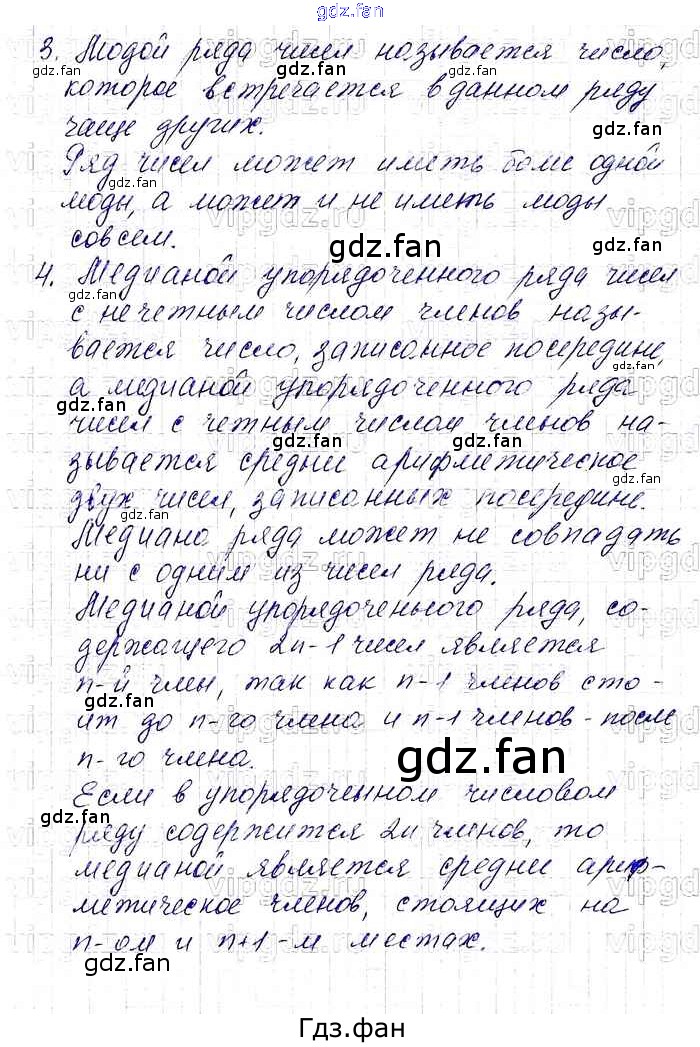 gdz.fan
3. Модой ряда чисел называется число,
которое встречается в данном ряду
чаще других.
Ряд чисел может иметь более одной
моды, а может и не иметь моды
совсем.
4. Медианой упорядоченного ряда чисел
с нечетным числом членов назы-
вается число, записанное посередине,
а медианой упорядоченного ряда
чисел с четным числом членов на-
зывается среднее арифметическое
двух чисел, записанных посередине.
Медиана ряда может не совпадать
ни с одним из чисел ряда.
Медианой упорядоченного ряда, со-
держащего 2n-1 чисел является
n-й член, так как n-1 членов сто-
ит до n-го члена и n-1 членов - после
n-го члена.
Если в упорядоченном числовом
ряду содержится 2n членов, то
медианой является среднее ариф-
метическое членов, стоящих на
n-ом и n+1-м местах.
gdz.fan
Гдз.фан